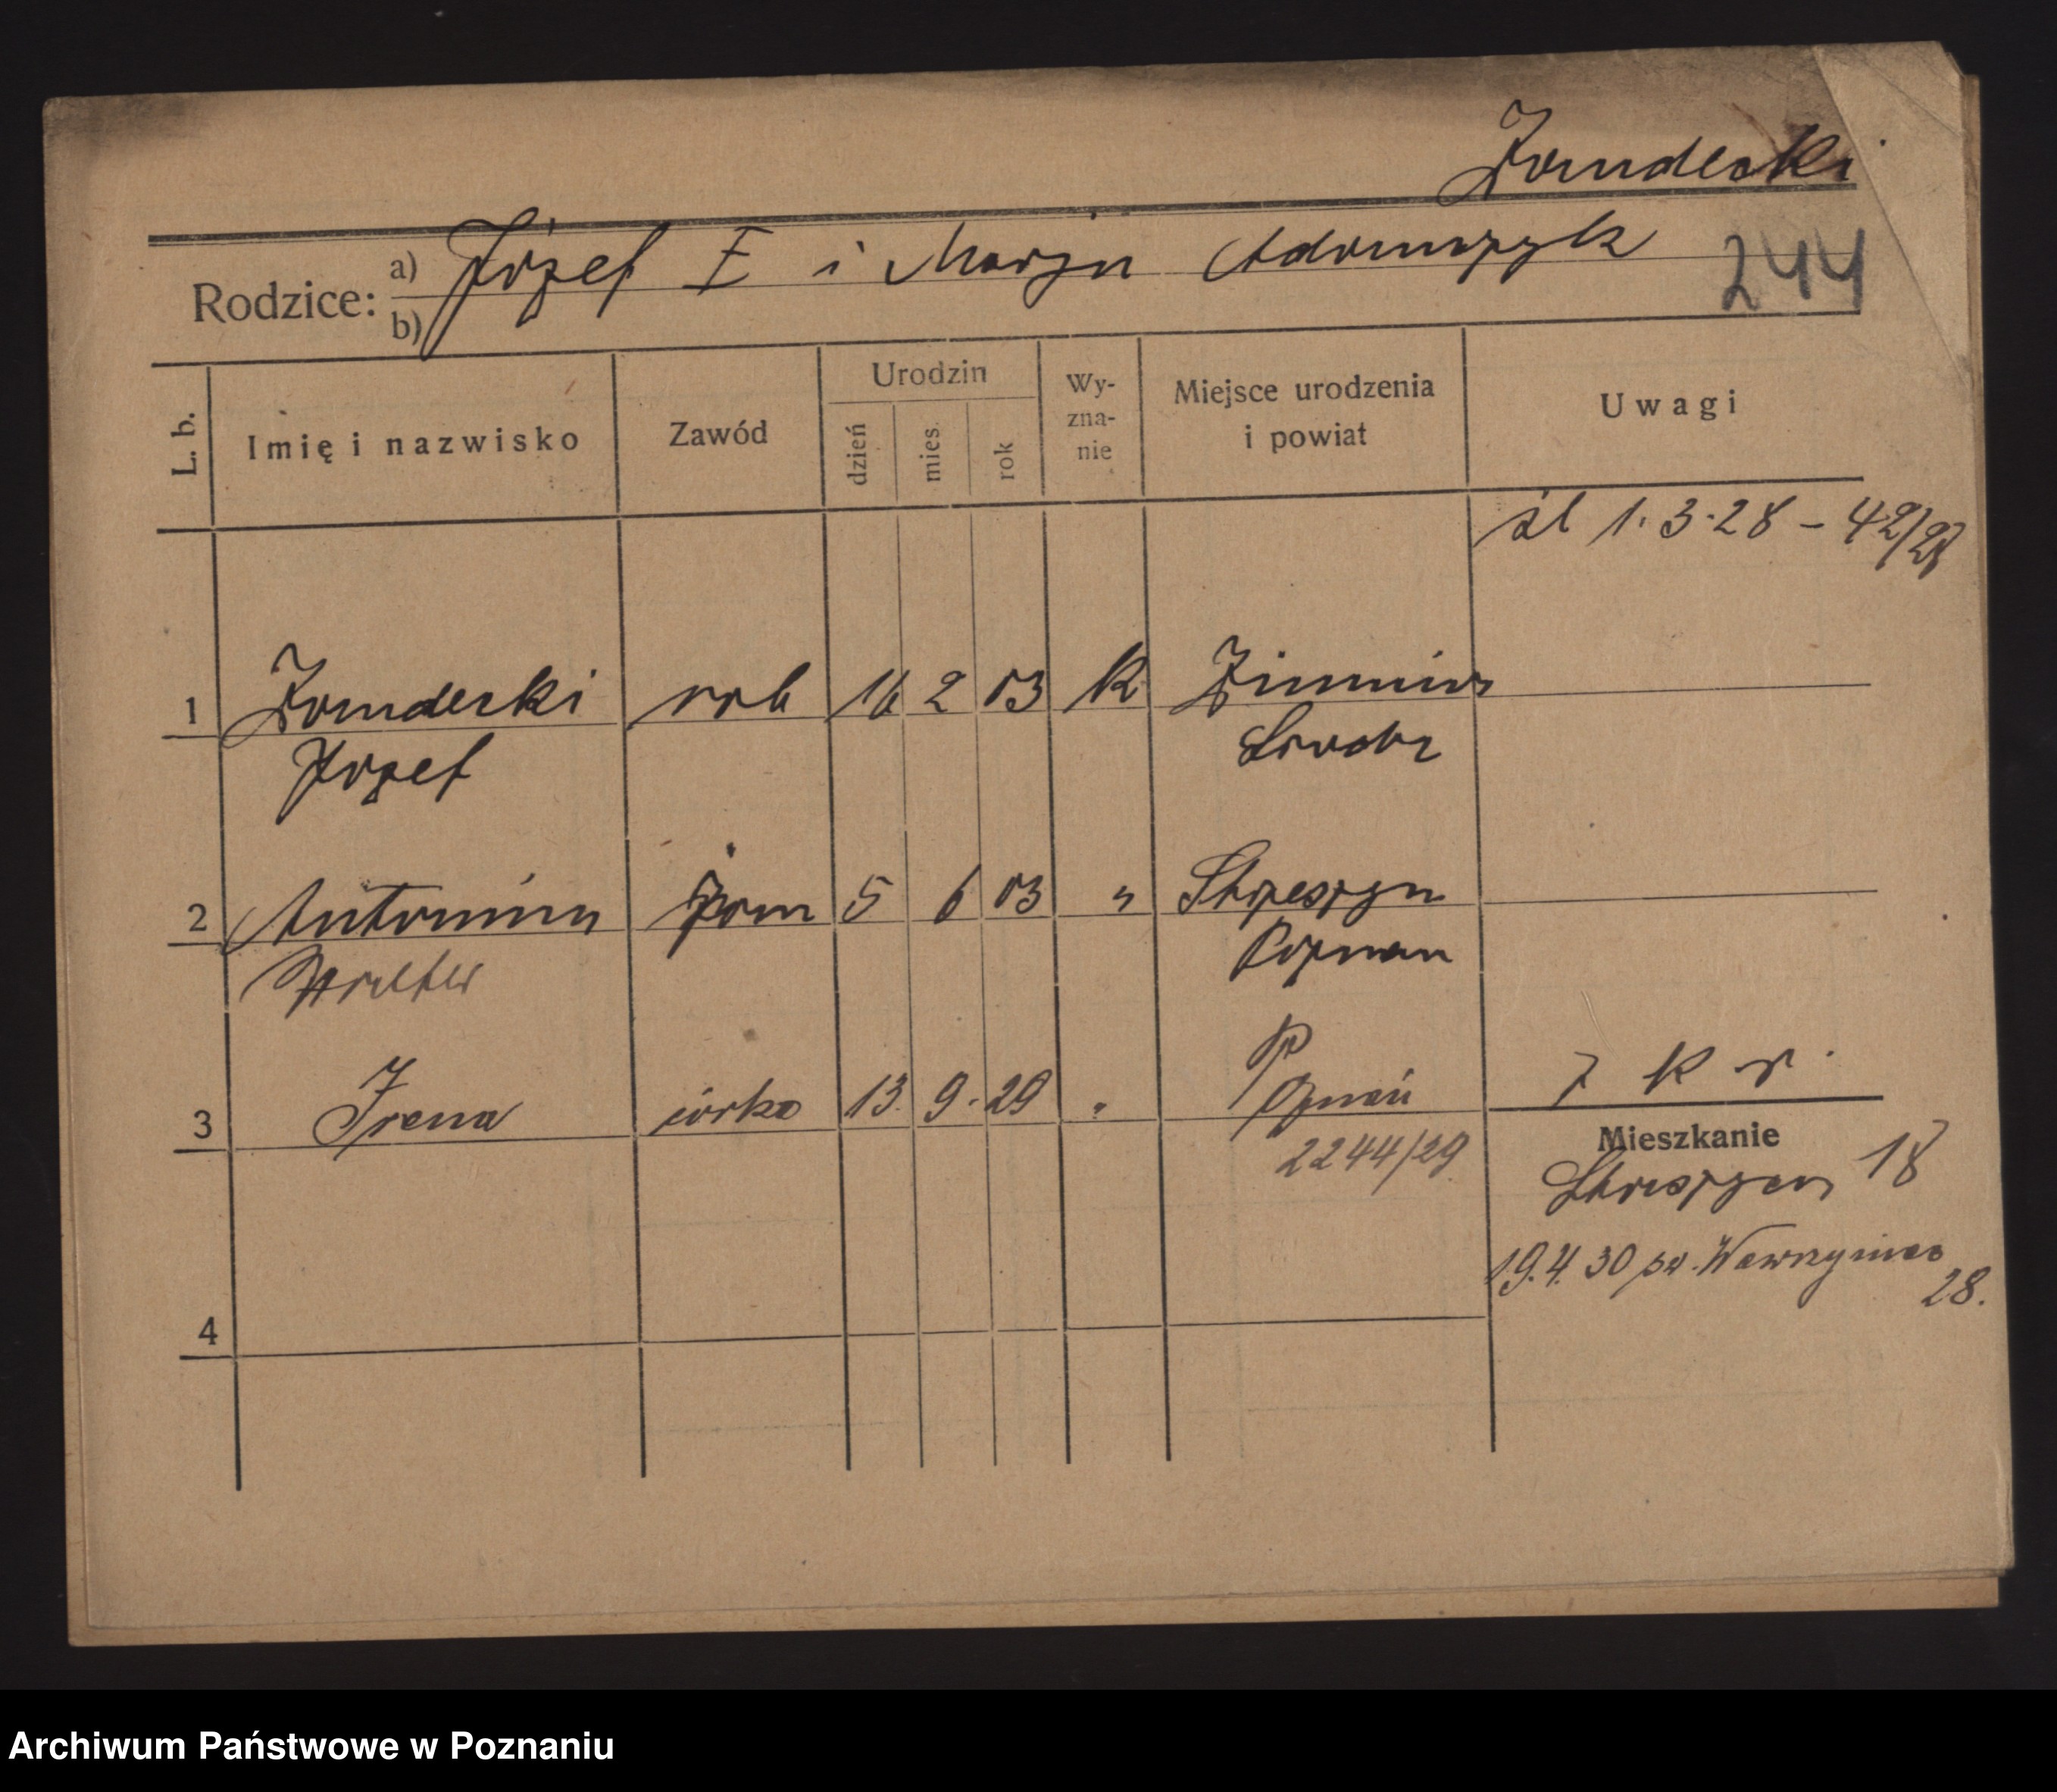 Zandecki
Rodzice: a) Józef I i Marja Adamczyk
b)
244
L. b.
Imię i nazwisko
Zawód
Urodzin
dzień
mies.
rok
Wy-
zna-
nie
Miejsce urodzenia
i powiat
Uwagi
śl 1.3.28 - 42/28
1 Zandecki rob 16 2 03 K Zimnin
Józef Środa
2 Antonina żona 5 6 03 " Strzeszyn
Walter Poznan
3 Irena córka 13. 9. 29 " Poznań
2244/29
Z K r.
Mieszkanie
Strzeszyn 18
19.4.30 św. Wawrzyńca
28.
4
Archiwum Państwowe w Poznaniu